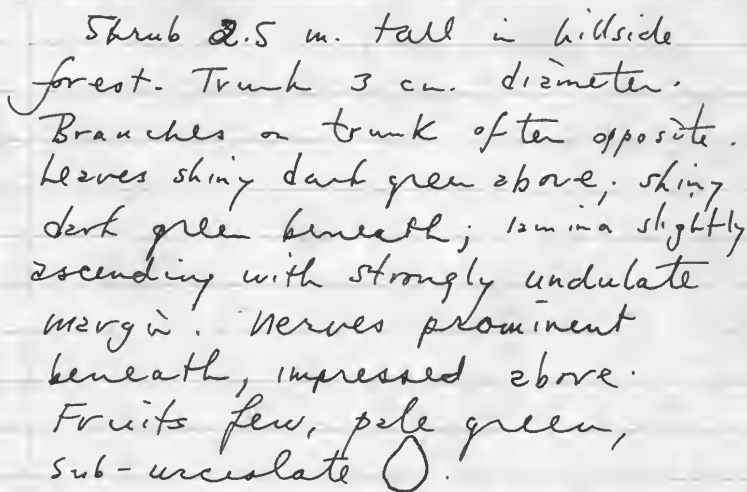 Shrub 2.5 m. tall in hillside
forest. Trunk 3 cm. diameter.
Branches on trunk often opposite.
Leaves shiny dark green above; shiny
dark green beneath; lamina slightly
ascending with strongly undulate
margin. Nerves prominent
beneath, impressed above.
Fruits few, pale green,
sub-urceolate.